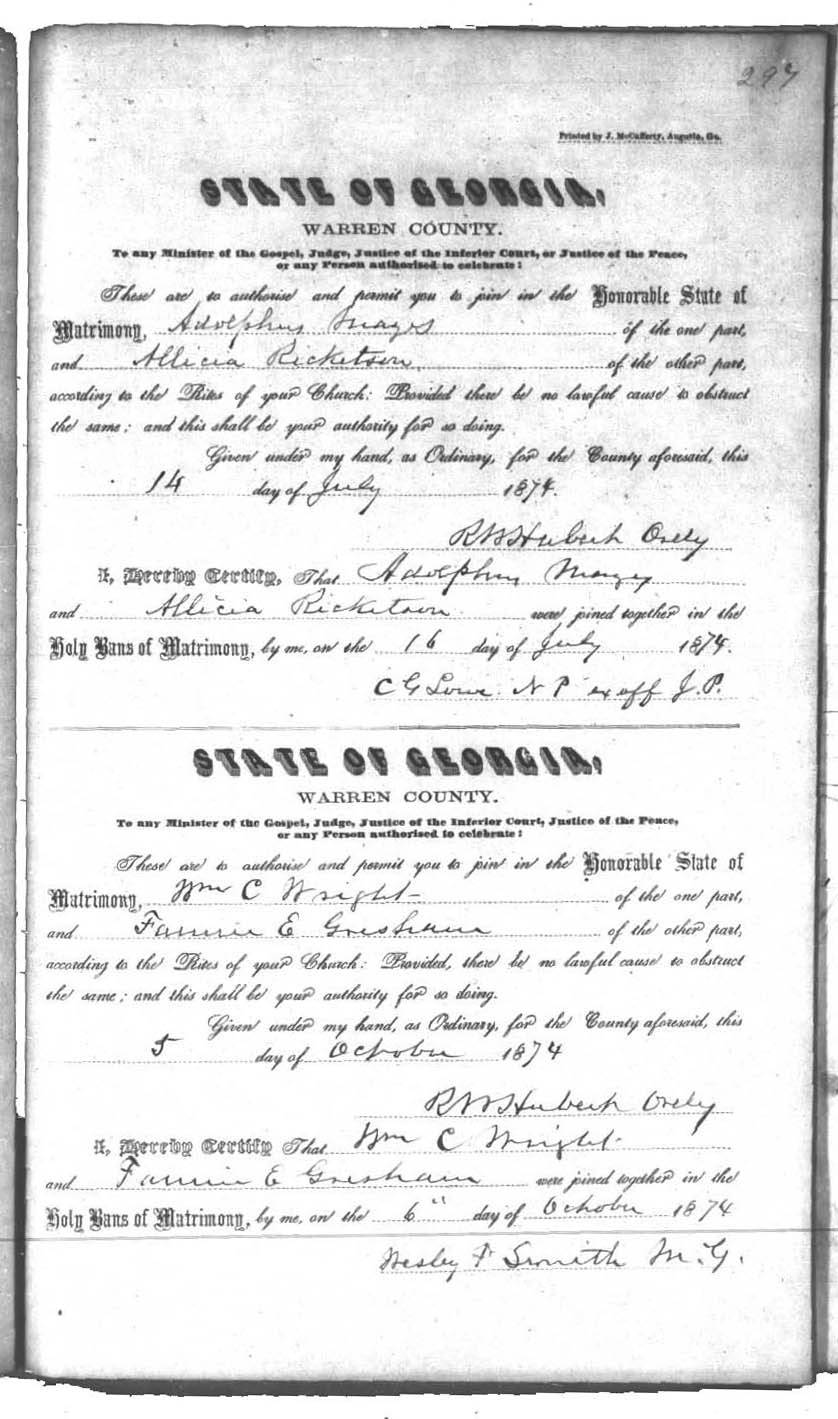 297
Printed by J. McCafferty, Augusta, Ga.
STATE OF GEORGIA,
WARREN COUNTY.
To any Minister of the Gospel, Judge, Justice of the Inferior Court, or Justice of the Peace,
or any Person authorised to celebrate:
These are to authorise and permit you to join in the Honorable State of
Matrimony, Adolphus Mayes of the one part,
and Allicia Ricketson of the other part,
according to the Rites of your Church: Provided there be no lawful cause to obstruct
the same; and this shall be your authority for so doing.
Given under my hand, as Ordinary, for the County aforesaid, this
14 day of July 1874.
R W Hubert Ordy
I, Hereby Certify, That Adolphus Mayes
and Allicia Ricketson were joined together in the
Holy Bans of Matrimony, by me, on the 16 day of July 1874.
C G Lowe N P ex off J. P.
STATE OF GEORGIA,
WARREN COUNTY.
To any Minister of the Gospel, Judge, Justice of the Inferior Court, Justice of the Peace,
or any Person authorised to celebrate:
These are to authorise and permit you to join in the Honorable State of
Matrimony, Wm C Wright of the one part,
and Fannie E Gresham of the other part,
according to the Rites of your Church: Provided, there be no lawful cause to obstruct
the same; and this shall be your authority for so doing.
Given under my hand, as Ordinary, for the County aforesaid, this
5 day of October 1874
R W Hubert Ordy
I, Hereby Certify That Wm C Wright
and Fannie E Gresham were joined together in the
Holy Bans of Matrimony, by me, on the 6" day of October 1874
Wesley P Smith M. G.